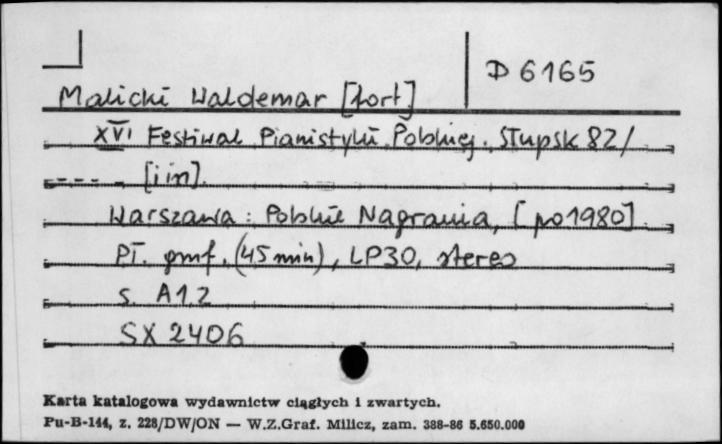 D 6165
Malicki Waldemar [fort]
XVI Festiwal Pianistyki Polskiej. Słupsk 82/
----- [i in].
Warszawa : Polskie Nagrania, [po 1980]
Pł. gmf. (45 min), LP30, stereo
s. A1,2
SX 2406
Karta katalogowa wydawnictw ciągłych i zwartych.
Pu-B-144, z. 228/DW/ON — W.Z.Graf. Milicz, zam. 388-86 5.650.000